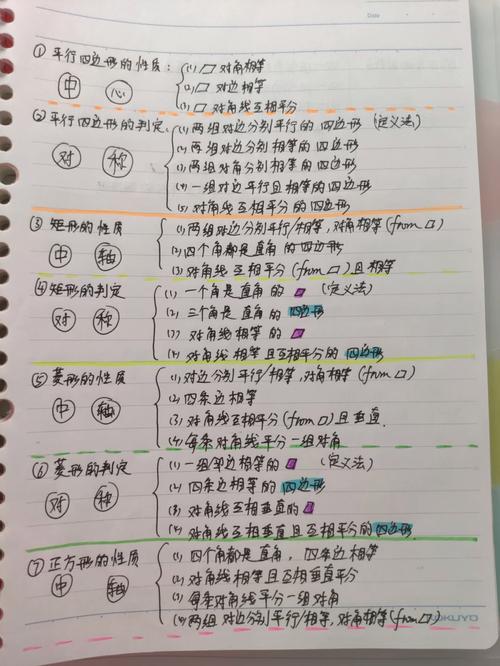 Date
① 平行四边形的性质:
(1) ▱ 对角相等
(2) ▱ 对边相等
(3) ▱ 对角线互相平分
中 心
② 平行四边形的判定.
(1) 两组对边分别平行的四边形 (定义法)
(2) 两组对边分别相等的四边形
(3) 两组对角分别相等的四边形
(4) 一组对边平行且相等的四边形
(5) 对角线互相平分的四边形
对 称
③ 矩形的性质
(1) 两组对边分别平行/相等, 对角相等 (from ▱)
(2) 四个角都是直角的四边形
(3) 对角线互相平分 (from ▱) 且相等
中 轴
④ 矩形的判定
(1) 一个角是直角的 ▱ (定义法)
(2) 三个角是直角的 四边形
(3) 对角线相等的 ▱
(4) 对角线相等且互相平分的 四边形
对 称
⑤ 菱形的性质
(1) 对边分别平行/相等, 对角相等 (from ▱)
(2) 四条边相等
(3) 对角线互相平分 (from ▱) 且垂直.
(4) 每条对角线平分一组对角
中 轴
⑥ 菱形的判定
(1) 一组邻边相等的 ▱ (定义法)
(2) 四条边相等的 四边形
(3) 对角线互相垂直的 ▱
(4) 对角线互相垂直且互相平分的 四边形.
对 称
⑦ 正方形的性质
(1) 四个角都是直角, 四条边相等
(2) 对角线相等且互相垂直平分
(3) 每条对角线平分一组对角
(4) 两组对边分别平行/相等, 对角相等 (from ▱)
中 轴
KOKUYO